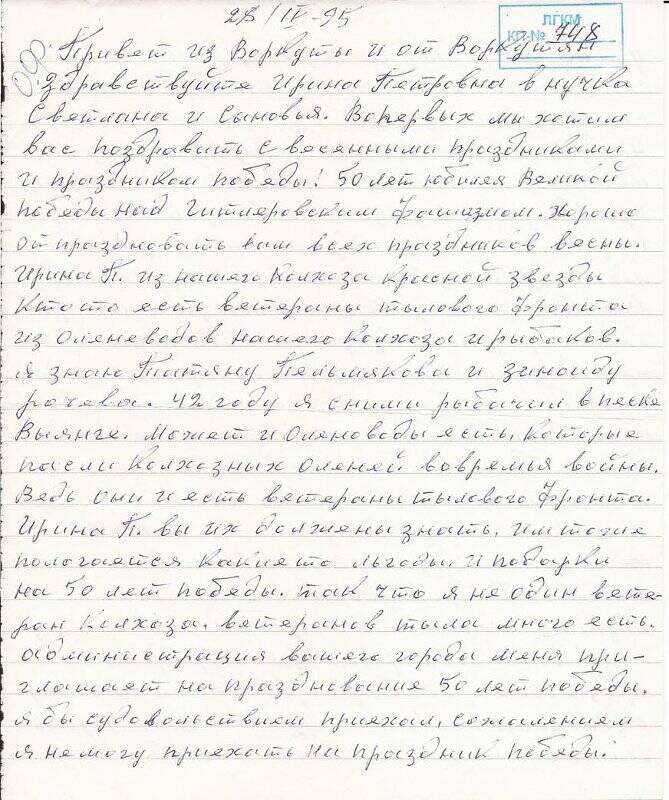 28/IV-95
ЛГКМ
КП-№ 748
Привет из Воркуты и от Воркутян
Здравствуйте Ирина Петровна внучка
Светлана и Сыновья. Вопервых мы хотим
вас поздравить с весенными праздниками
и праздником победы! 50 лет юбилея Великой
победы над Гитлеровским фашизмом. Хорошо
отпраздновать вам всех праздников весны.
Ирина П. из нашего Колхоза Красной звезды
Кто то есть ветераны тылового фронта
из Оленеводов нашего Колхоза и рыбаков.
я знаю Татяну Пельмякова и зиноиду
рочева. 42 году я сними рыбачил в песке
Вылнге. Может и Оленоводы есть. Которые
пасли Колхозных Оленей вовремья войны.
Ведь они и есть ветераны тылового фронта.
Ирина П. вы их должены знать. им тоже
пологается какие то льготы. и подарки
на 50 лет победы. так что я не один вете-
ран Колхоза. ветеранов тыла много есть.
администрация вашего города меня при-
глашает на празднование 50 лет победы.
я бы судовольствием приехал, сожалением
я немогу приехать на праздник победы.